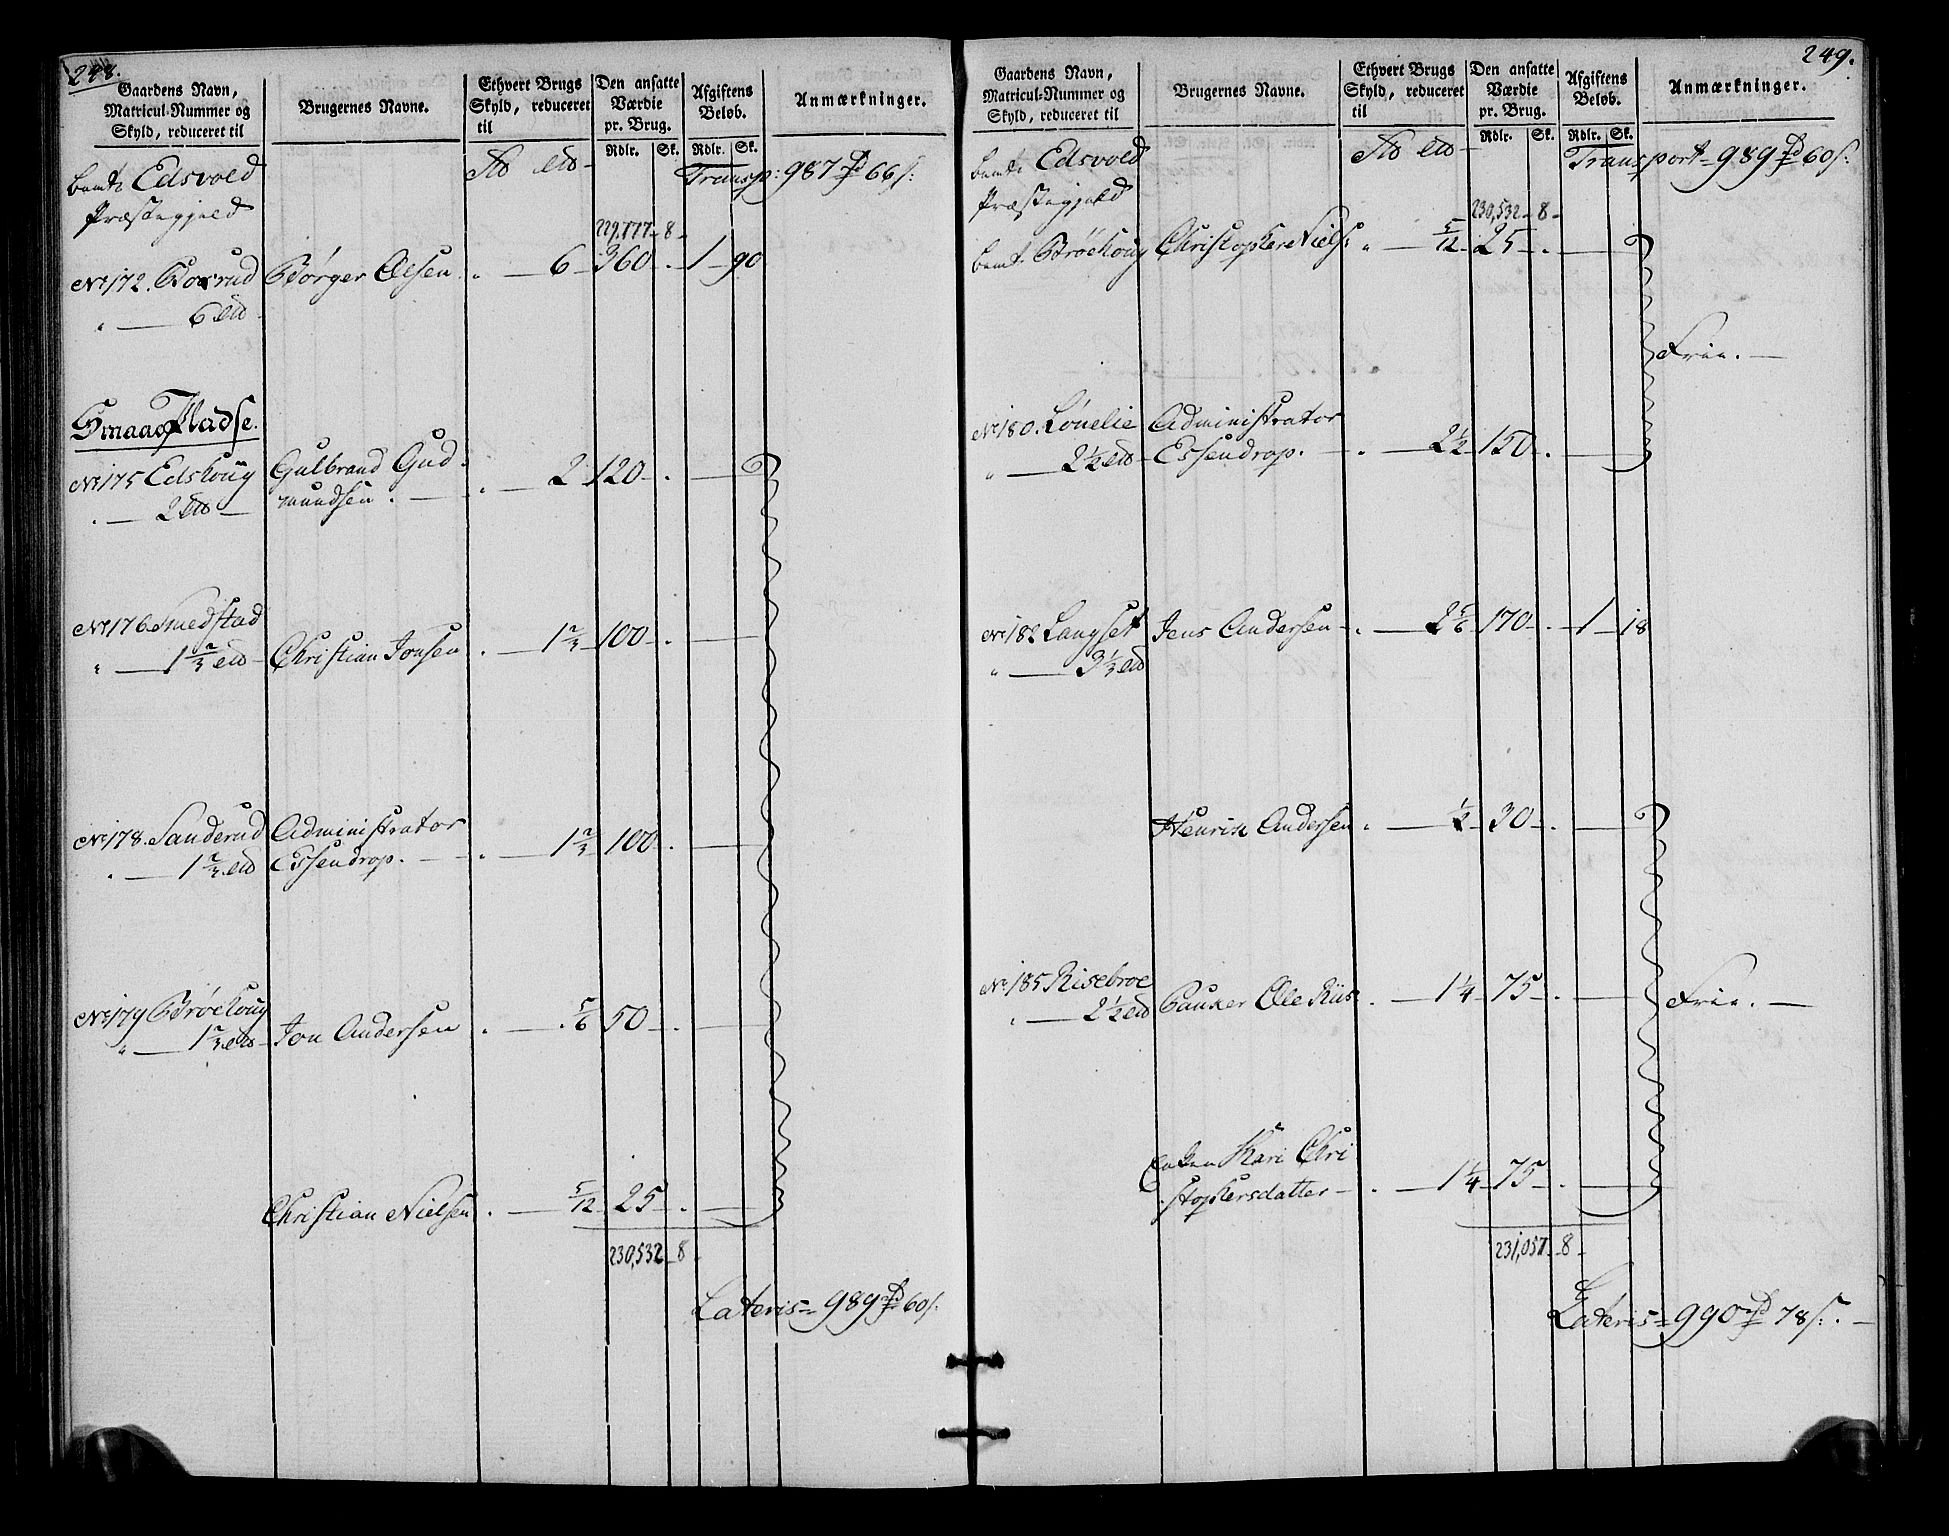 248.
Gaardens Navn,
Matricul-Nummer og
Skyld, reduceret til
Brugernes Navne.
Ethvert Brugs
Skyld, reduceret
til
Den ansatte
Værdie
pr. Brug.
Rdlr. Sk.
Afgiftens
Beløb.
Rdlr. Sk.
Anmærkninger.
bemte Edsvold
Præstegjeld
Transp: 987 rd 66 s:
229,777 - 8 -
No 172. Korsrud Børger Olsen . " — 6 - 360 - . - 1 - 90
" — 6
Smaae Pladse.
No 175 Edskoug Gulbrand Gud-
" — 2 mundsen . — . — 2 - 120 - .
No 176 Smedstad
" — 1 2/3 Christian Jonsen . — 1 2/3 - 100 - .
No 178. Sanderud Administrator
. — 1 2/3 Essendrop. — . — 1 2/3 - 100 - .
No 179 Brøekoug
" — 1 2/3 Jon Andersen . — . 5/6 50 - .
Christian Nielsen . — 5/12 25 - .
230,532 - 8 -
Lateris = 989 rd 60 s:
249.
Gaardens Navn,
Matricul-Nummer og
Skyld, reduceret til
Brugernes Navne.
Ethvert Brugs
Skyld, reduceret
til
Den ansatte
Værdie
pr. Brug.
Rdlr. Sk.
Afgiftens
Beløb.
Rdlr. Sk.
Anmærkninger.
bemte Edsvold
Præstegjeld
Transport = 989 rd 60 s:
230,532 - 8 -
bemte Brøekoug Christopher Niels: " — 5/12 - 25 - .
Frie. —
No 180. Lønelie Administrator
" — 2 1/2 Essendrop. — . — 2 1/2 - 150 - .
No 182 Langset Jens Andersen - . — 2 5/6 - 170 - . - 1 - 18
" — 3 1/3
Henrik Andersen . — 1/2 - 30 - .
No 185 Risebroe
. — 2 1/2 Ole Riis . — 1 1/4 - 75 - .
Frie. —
Enken Kari Chri
stophersdatter - . — 1 1/4 - 75 - .
231,057 - 8 -
Lateris = 990 rd 78 s: . —